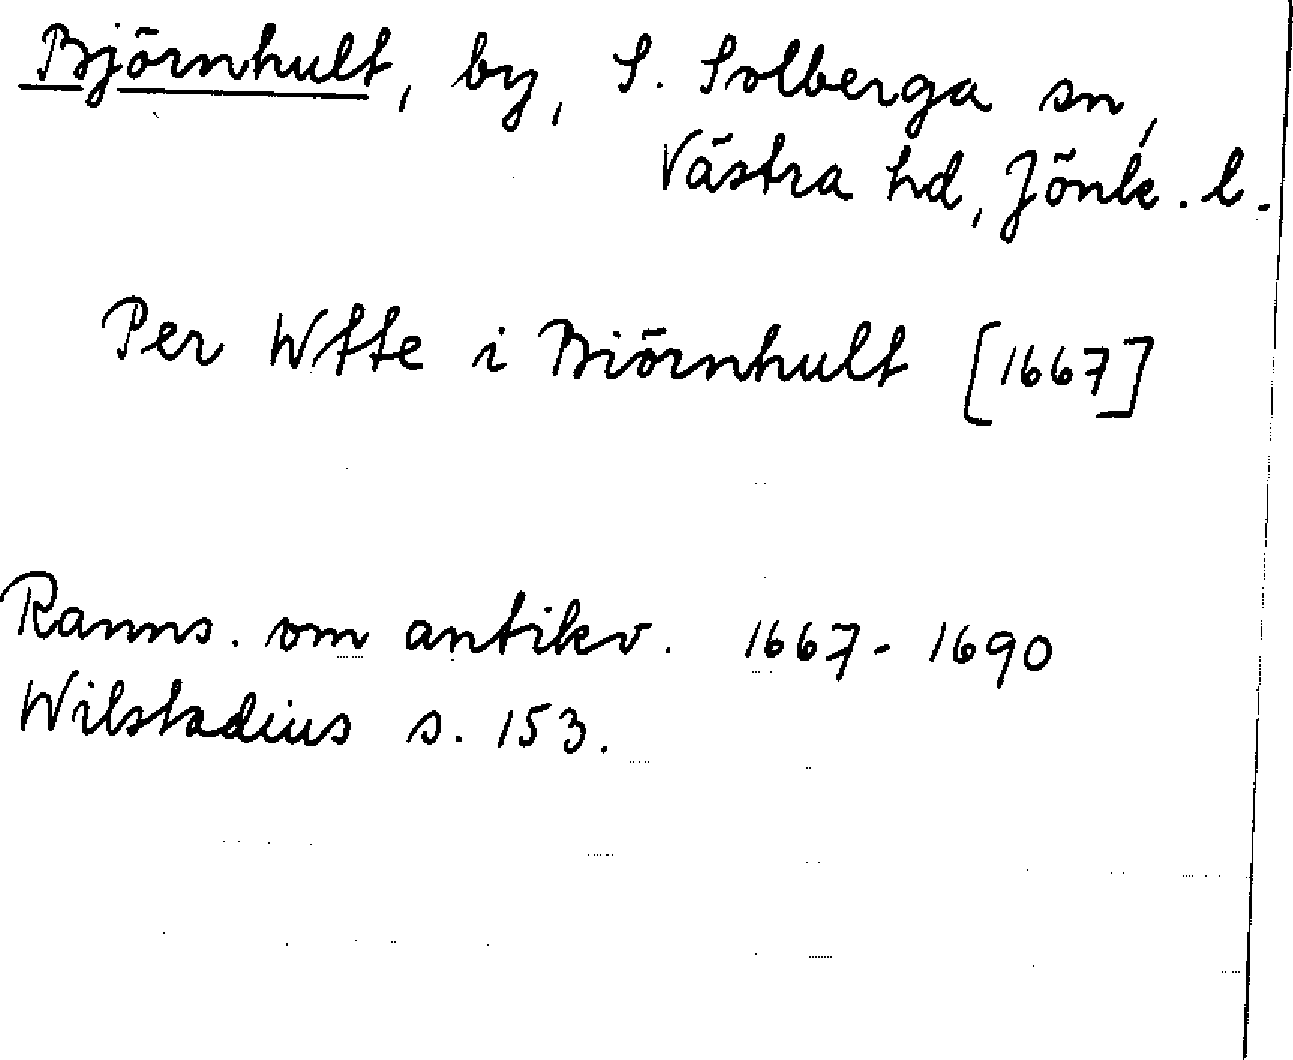 Björnhult, by, S. Solberga sn,
Västra hd, Jönk. l.
Per Utte i Biörnhult [1667]
Ranns. om antikv. 1667-1690
Wilstadius s. 153.